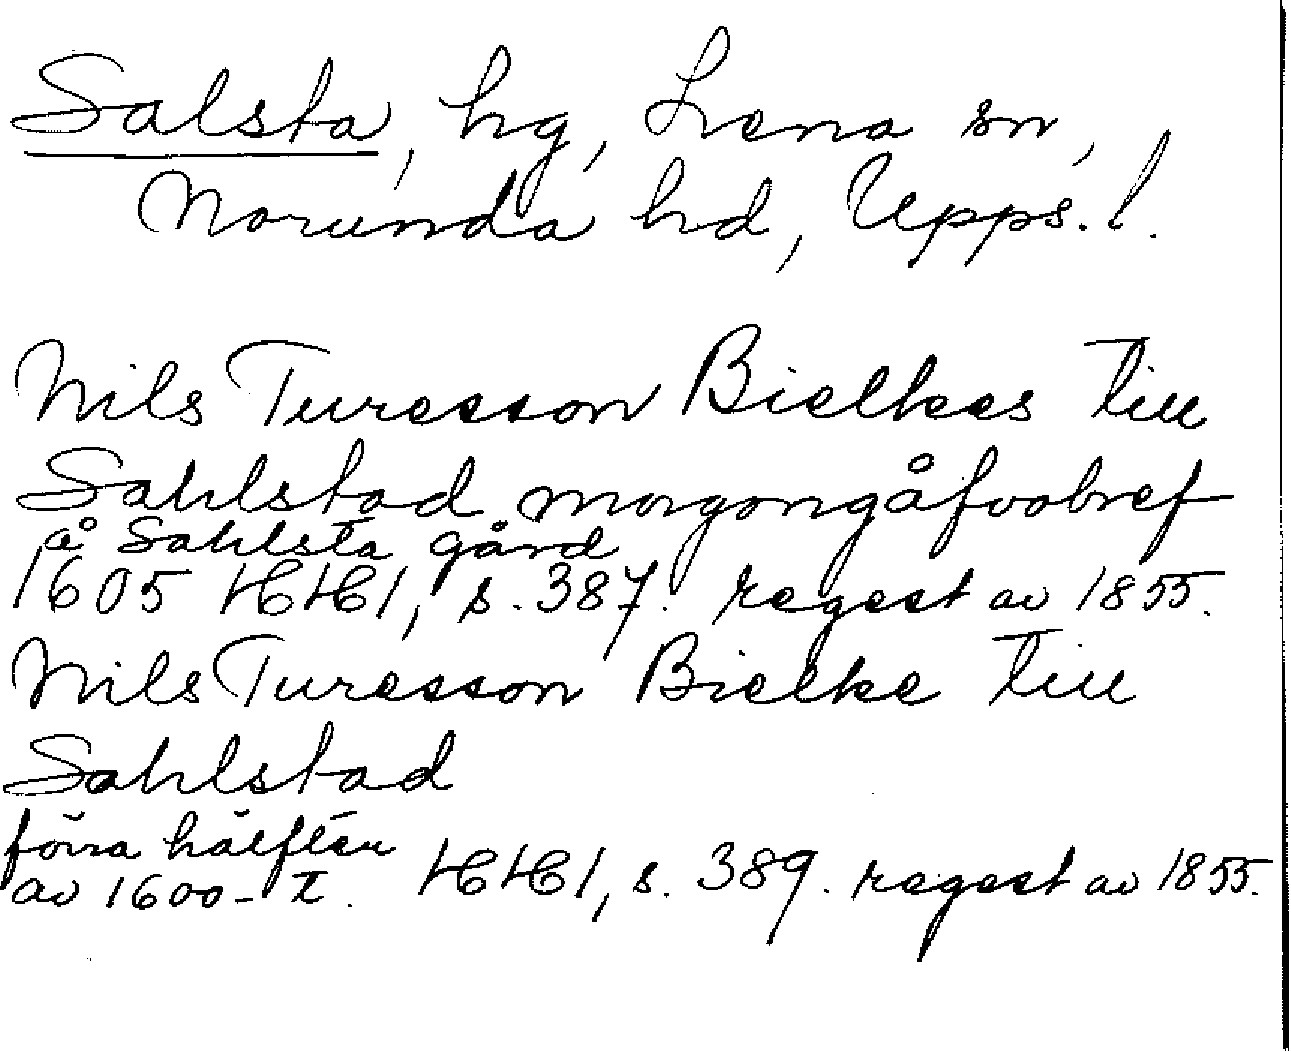 Salsta, hg, Lena sn,
Norunda hd, Upps. l.
Nils Turesson Bielkes till
Sahlstad morgongåfvobref
å Sahlsta gård
1605 HH1, s. 387. regest av 1855.
Nils Turesson Bielke till
Sahlstad
förra hälften
av 1600-t. HH1, s. 389. regest av 1855.